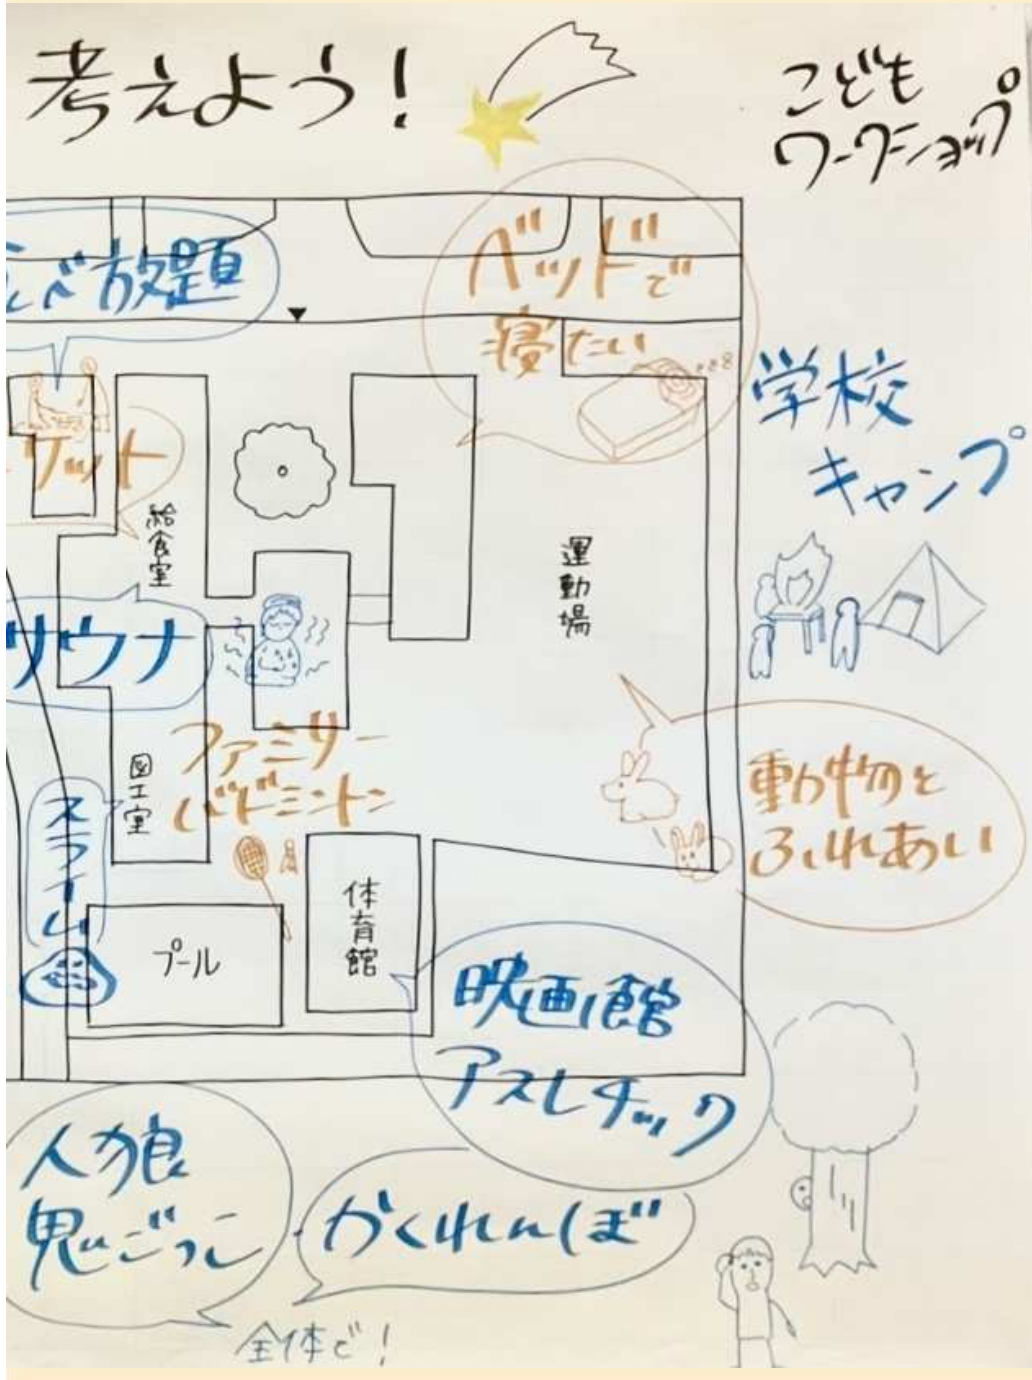 考えよう！
こども
ワークショップ
べ放題
ベッドで
寝たい
学校
キャンプ
ケット
給食室
運動場
サウナ
ファミリー
バドミントン
図工室
スライム
動物と
ふれあい
プール
体育館
映画館
アスレチック
人狼
鬼ごっこ
かくれんぼ
全体で！